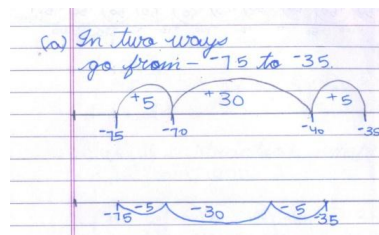 (a) In two ways
go from - ⁻75 to ⁻35.
⁺5 ⁺30 ⁺5
⁻75 ⁻70 ⁻40 ⁻35
⁻75 ⁻5 ⁻30 ⁻5 ⁻35